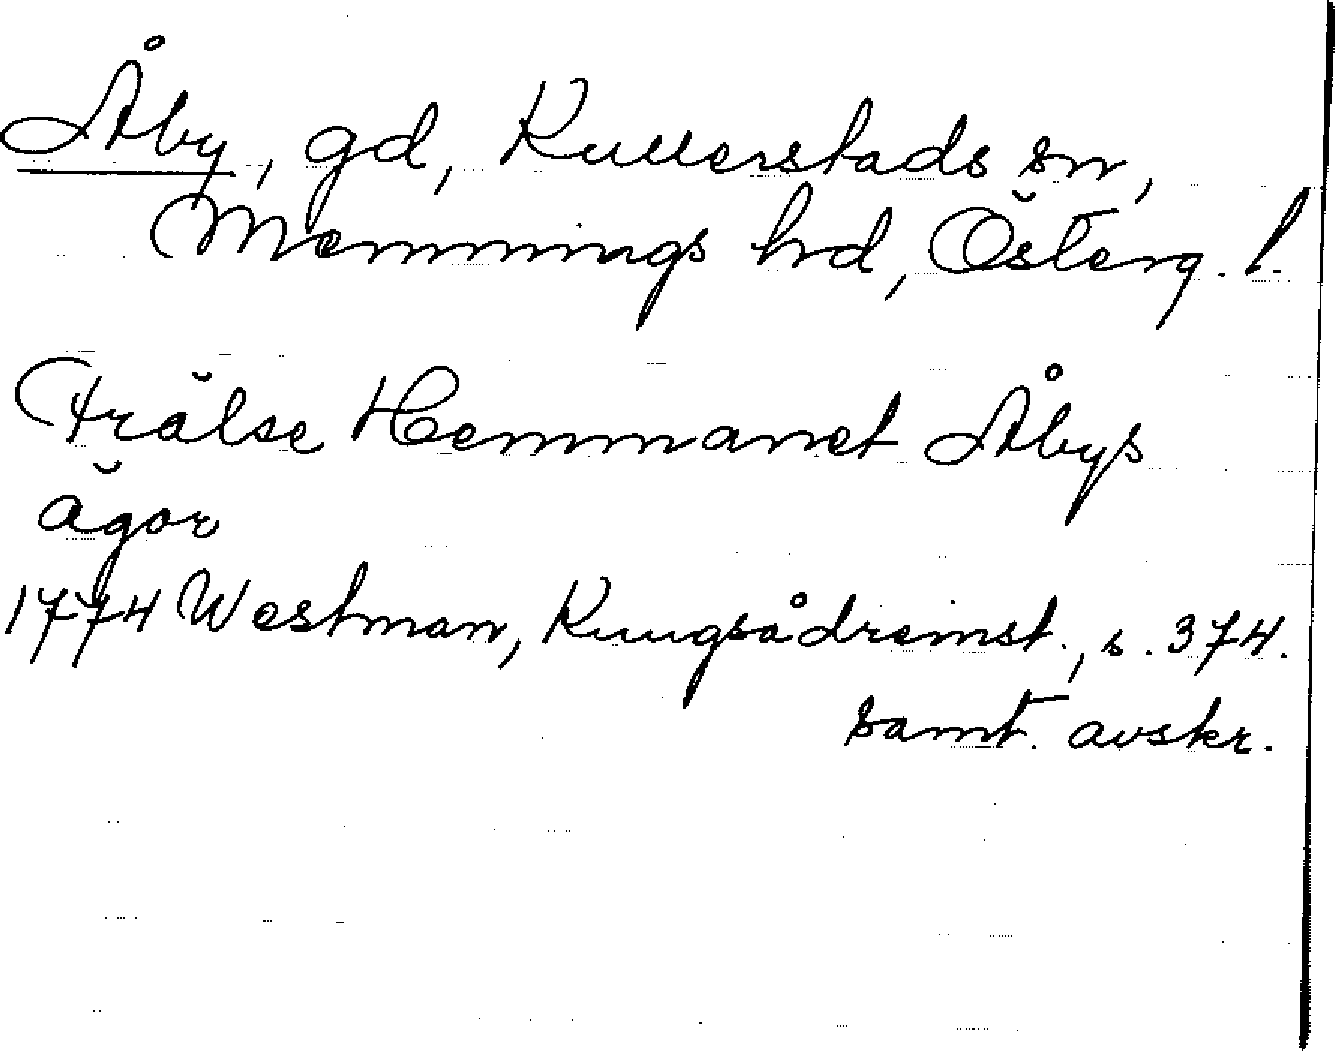 Åby, gd, Kullerstads sn,
Memmings hd, Österg. l.
Frälse Hemmanet Åbys
ägor
1774 Westman, Kungsådremst., s. 374.
samt. avskr.